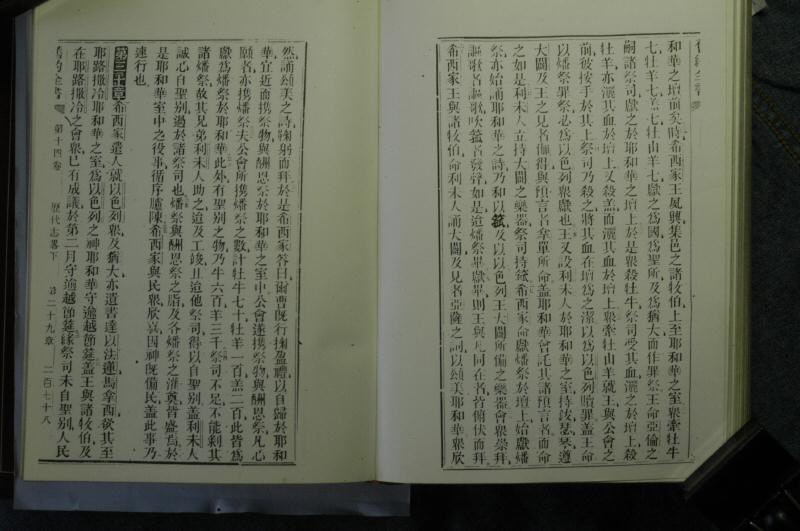 舊約全書
和華之壇前矣時希西家王夙興集邑之諸牧伯上至耶和華之室衆牽牡牛
七牡羊七羔七牡山羊七獻之爲國爲聖所及爲猶大而作罪祭王命亞倫之
嗣諸祭司獻之於耶和華之壇上於是衆殺牡牛祭司受其血灑之於壇上殺
牡羊亦灑其血於壇上又殺羔而灑其血於壇上衆牽牡山羊就王與公會之
前彼按手於其上祭司乃殺之將其血在壇爲之潔以爲以色列贖罪蓋王命
以燔祭罪祭必爲以色列衆獻也王又設利未人於耶和華之室持鈸瑟琴遵
大闢及王之見者伽得與預言者拿單所命蓋耶和華曾托其諸預言者而命
之如是利未人立持大闢之樂器祭司持箛希西家命獻燔祭於壇上始獻燔
祭亦始誦耶和華之詩乃和以箛及以以色列王大闢所備之樂器會衆崇拜
謳歌者謳歌吹箛者發聲如是迨燔祭畢獻畢則王與凡同在者皆俯伏而拜
希西家王與諸牧伯命利未人誦大闢及見者亞薩之詞以頌美耶和華衆欣
然誦頌美之詩鞠躬而拜於是希西家答曰爾曹旣行掬盈禮以自歸於耶和
華宜近而携祭物與酬恩祭於耶和華之室中公會遂携祭物與酬恩祭凡心
願者亦携燔祭夫公會所携燔祭之數計牡牛七十牡羊一百羔二百此皆爲
獻爲燔祭於耶和華此外有聖别之物乃牛六百羊三千祭司不足不能剝其
諸燔祭故其兄弟利未人助之迨及工竣且迨他祭司得以自聖别蓋利未人
誠心自聖别過於諸祭司也燔祭與酬恩祭之脂及各燔祭之灌奠皆盛焉於
是耶和華室中之役事循序臚陳希西家與民衆欣喜因神旣備民蓋此事乃
速行也
第三十章希西家遣人就以色列衆及猶大亦遣書達以法蓮馬拿西欲其至
耶路撒冷耶和華之室爲以色列之神耶和華守逾越節筵蓋王與諸牧伯及
在耶路撒冷之會衆已有成議於第二月守逾越節筵緣祭司未自聖别人民
舊約全書 第十四卷 歷代志畧下 二十九章 二百七十八